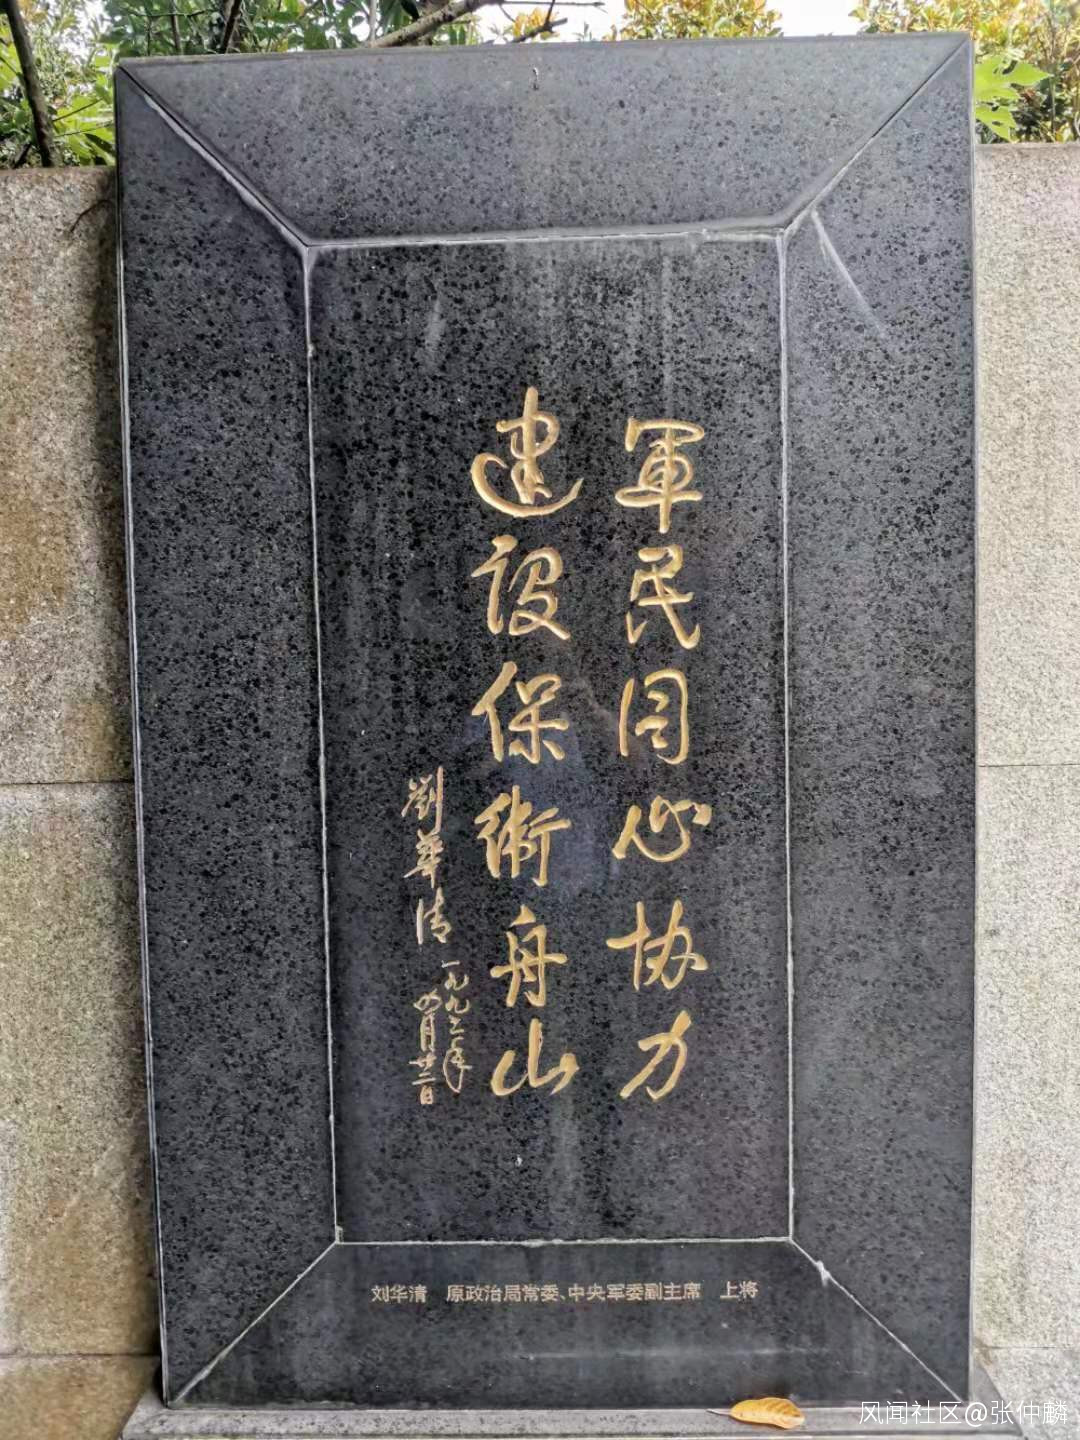 軍民同心协力
建设保衛舟山
劉華清
一九九二年
四月廿二日
刘华清 原政治局常委、中央军委副主席 上将
风闻社区@张仲麟